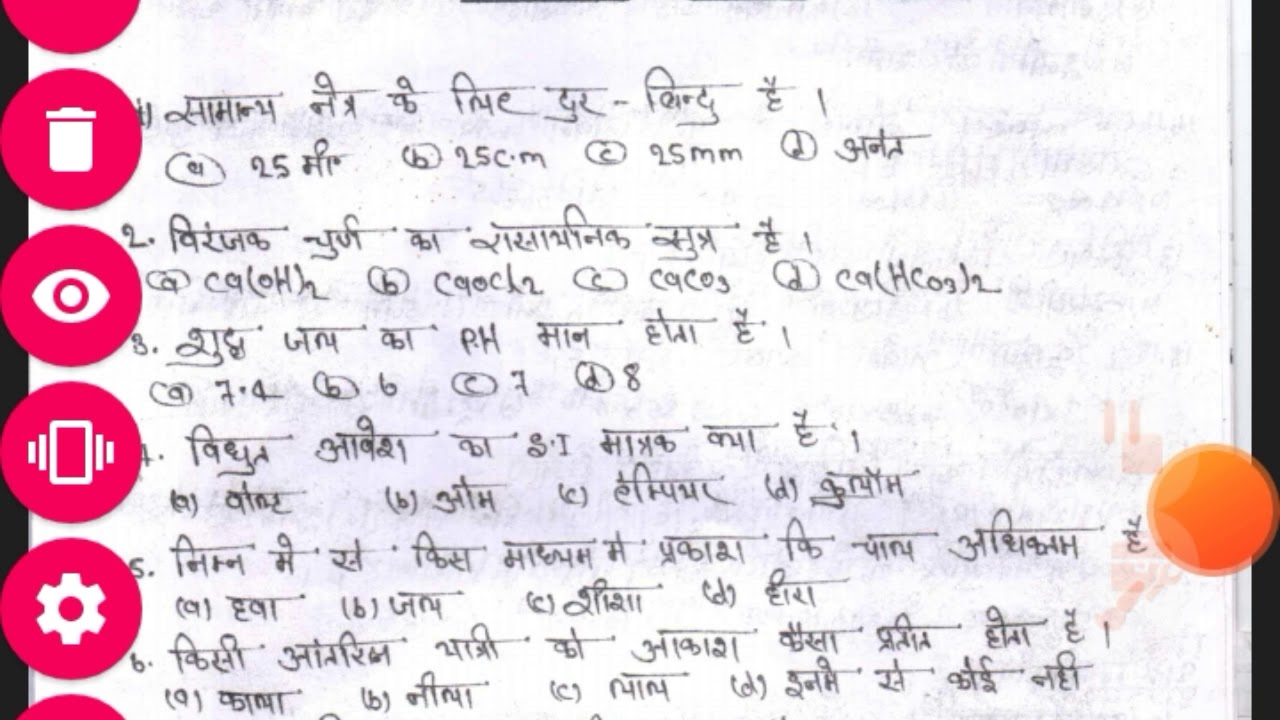 1) सामान्य नेत्र के लिए दुर - बिन्दु है ।
(a) 25 मी० (b) 25c.m (c) 25mm (d) अनंत
2. विरंजक चुर्ण का रासायनिक सुत्र है ।
(a) ca(OH)2 (b) caocl2 (c) caco3 (d) ca(Hco3)2
3. शुद्ध जल का P.H मान होता है ।
(a) 7.4 (b) 6 (c) 7 (d) 8
4. विधुत आवेश का S.I मात्रक क्या है ।
(a) वोल्ट (b) ओम (c) ऐम्पियर (d) कुलॉम
5. निम्न मे से किस माध्यम मे प्रकाश कि चाल अधिकतम है
(a) हवा (b) जल (c) शीशा (d) हीरा
6. किसी आंतरिक्ष यात्री को आकाश कैसा प्रतीत होता है ।
(a) काला (b) नीला (c) लाल (d) इनमे से कोई नही